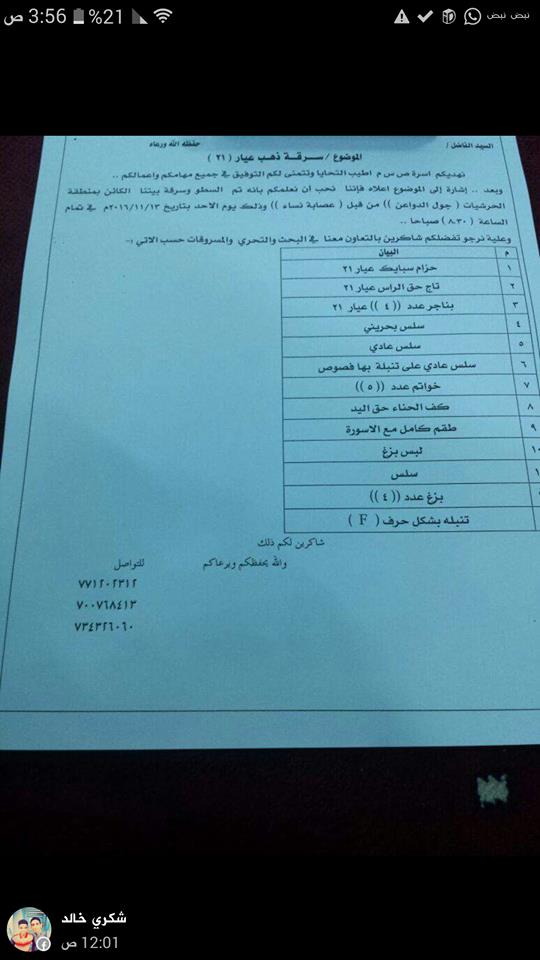 3:56 ص
21%
نبض نبض
السيد الفاضل / حفظه الله ورعاه
الموضوع / سرقة ذهب عيار ( ٢١ )
نهديكم اسرة ص س م اطيب التحايا ونتمنى لكم التوفيق في جميع مهامكم واعمالكم ..
وبعد .. إشارة إلى الموضوع اعلاه فإننا نحب ان نعلمكم بانه تم السطو وسرقة بيتنا الكائن بمنطقة
الحرشيات ( جول الدواعن )) من قبل ( عصابة نساء )) وذلك يوم الاحد بتاريخ ٢٠١٦/١١/١٣م في تمام
الساعة ( ٨،٣٠ ) صباحا ..
وعلية نرجو تفضلكم شاكرين بالتعاون معنا في البحث والتحري والمسروقات حسب الاتي :-
م البيان
١ حزام سبايك عيار ٢١
٢ تاج حق الراس عيار ٢١
٣ بناجر عدد (( ٤ )) عيار ٢١
٤ سلس بحريني
٥ سلس عادي
٦ سلس عادي على تنبلة بها فصوص
٧ خواتم عدد (( ٥ ))
٨ كف الحناء حق اليد
٩ طقم كامل مع الاسورة
١٠ لبس بزغ
سلس
بزغ عدد (( ٤ ))
تنبله بشكل حرف ( F )
شاكرين لكم ذلك
والله يحفظكم ويرعاكم
للتواصل
٧٧١٢٠٢٣١٢
٧٠٠٧٦٨٤١٣
٧٣٤٣٢٦٠٦٠
شكري خالد
12:01 ص